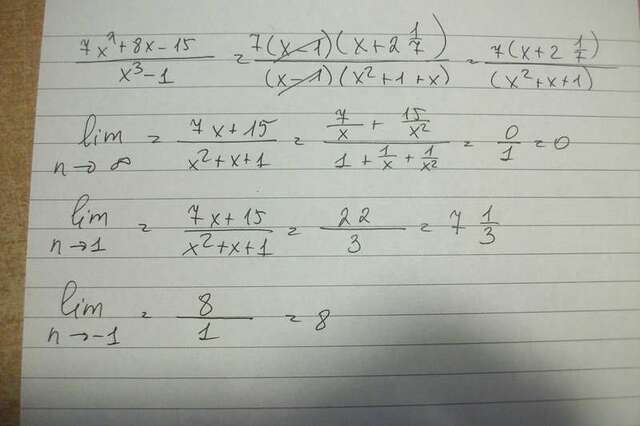 7x² + 8x - 15 / x³ - 1 = 7(x - 1)(x + 2 1/7) / (x - 1)(x² + 1 + x) = 7(x + 2 1/7) / (x² + x + 1)
lim n → ∞ = 7x + 15 / x² + x + 1 = 7/x + 15/x² / 1 + 1/x + 1/x² = 0/1 = 0
lim n → 1 = 7x + 15 / x² + x + 1 = 22/3 = 7 1/3
lim n → -1 = 8/1 = 8